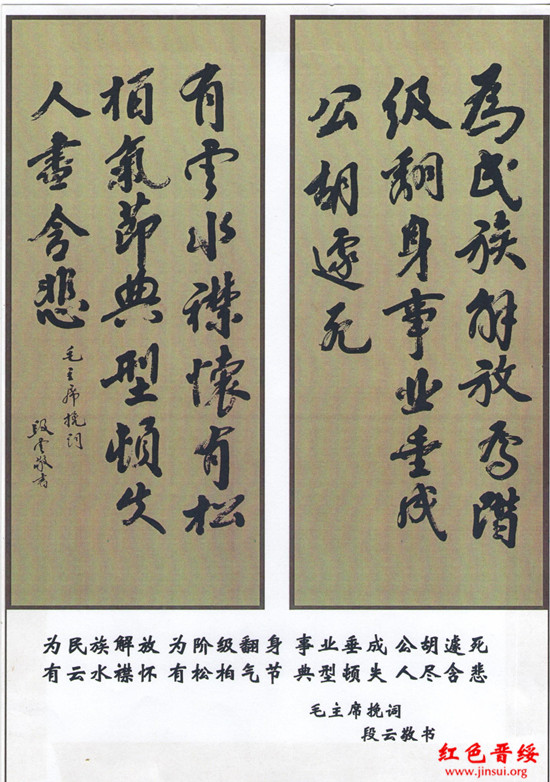 为民族解放为阶
级翻身事业垂成
公胡遽死
有云水襟怀有松
柏氣節典型頓失
人盡含悲
毛主席挽词
段云敬书
为民族解放 为阶级翻身 事业垂成 公胡遽死
有云水襟怀 有松柏气节 典型顿失 人尽含悲
毛主席挽词
段云敬书
红色晋绥
www.jinsui.org